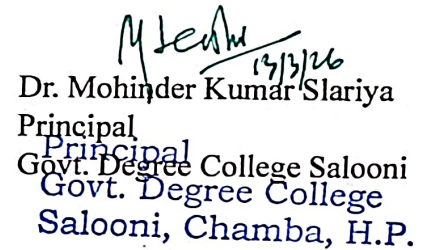 13/3/26
Dr. Mohinder Kumar Slariya
Principal
Principal
Govt. Degree College Salooni
Govt. Degree College
Salooni, Chamba, H.P.